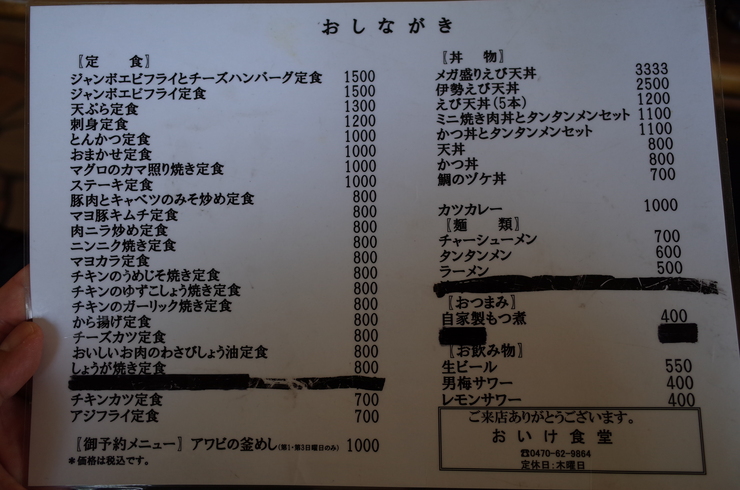 おしながき
〖定　食〗
ジャンボエビフライとチーズハンバーグ定食 1500
ジャンボエビフライ定食 1500
天ぷら定食 1300
刺身定食 1200
とんかつ定食 1000
おまかせ定食 1000
マグロのカマ照り焼き定食 1000
ステーキ定食 1000
豚肉とキャベツのみそ炒め定食 800
マヨ豚キムチ定食 800
肉ニラ炒め定食 800
ニンニク焼き定食 800
マヨカラ定食 800
チキンのうめじそ焼き定食 800
チキンのゆずこしょう焼き定食 800
チキンのガーリック焼き定食 800
から揚げ定食 800
チーズカツ定食 800
おいしいお肉のわさびしょう油定食 800
しょうが焼き定食 800
チキンカツ定食 700
アジフライ定食 700
〖御予約メニュー〗アワビの釜めし(第1・第3日曜日のみ) 1000
＊価格は税込です。
〖丼　物〗
メガ盛りえび天丼 3333
伊勢えび天丼 2500
えび天丼(5本) 1200
ミニ焼き肉丼とタンタンメンセット 1100
かつ丼とタンタンメンセット 1100
天丼 800
かつ丼 800
鯛のヅケ丼 700
カツカレー 1000
〖麺　類〗
チャーシューメン 700
タンタンメン 600
ラーメン 500
〖おつまみ〗
自家製もつ煮 400
〖お飲み物〗
生ビール 550
男梅サワー 400
レモンサワー 400
ご来店ありがとうございます。
おいけ食堂
☎0470-62-9864
定休日:木曜日